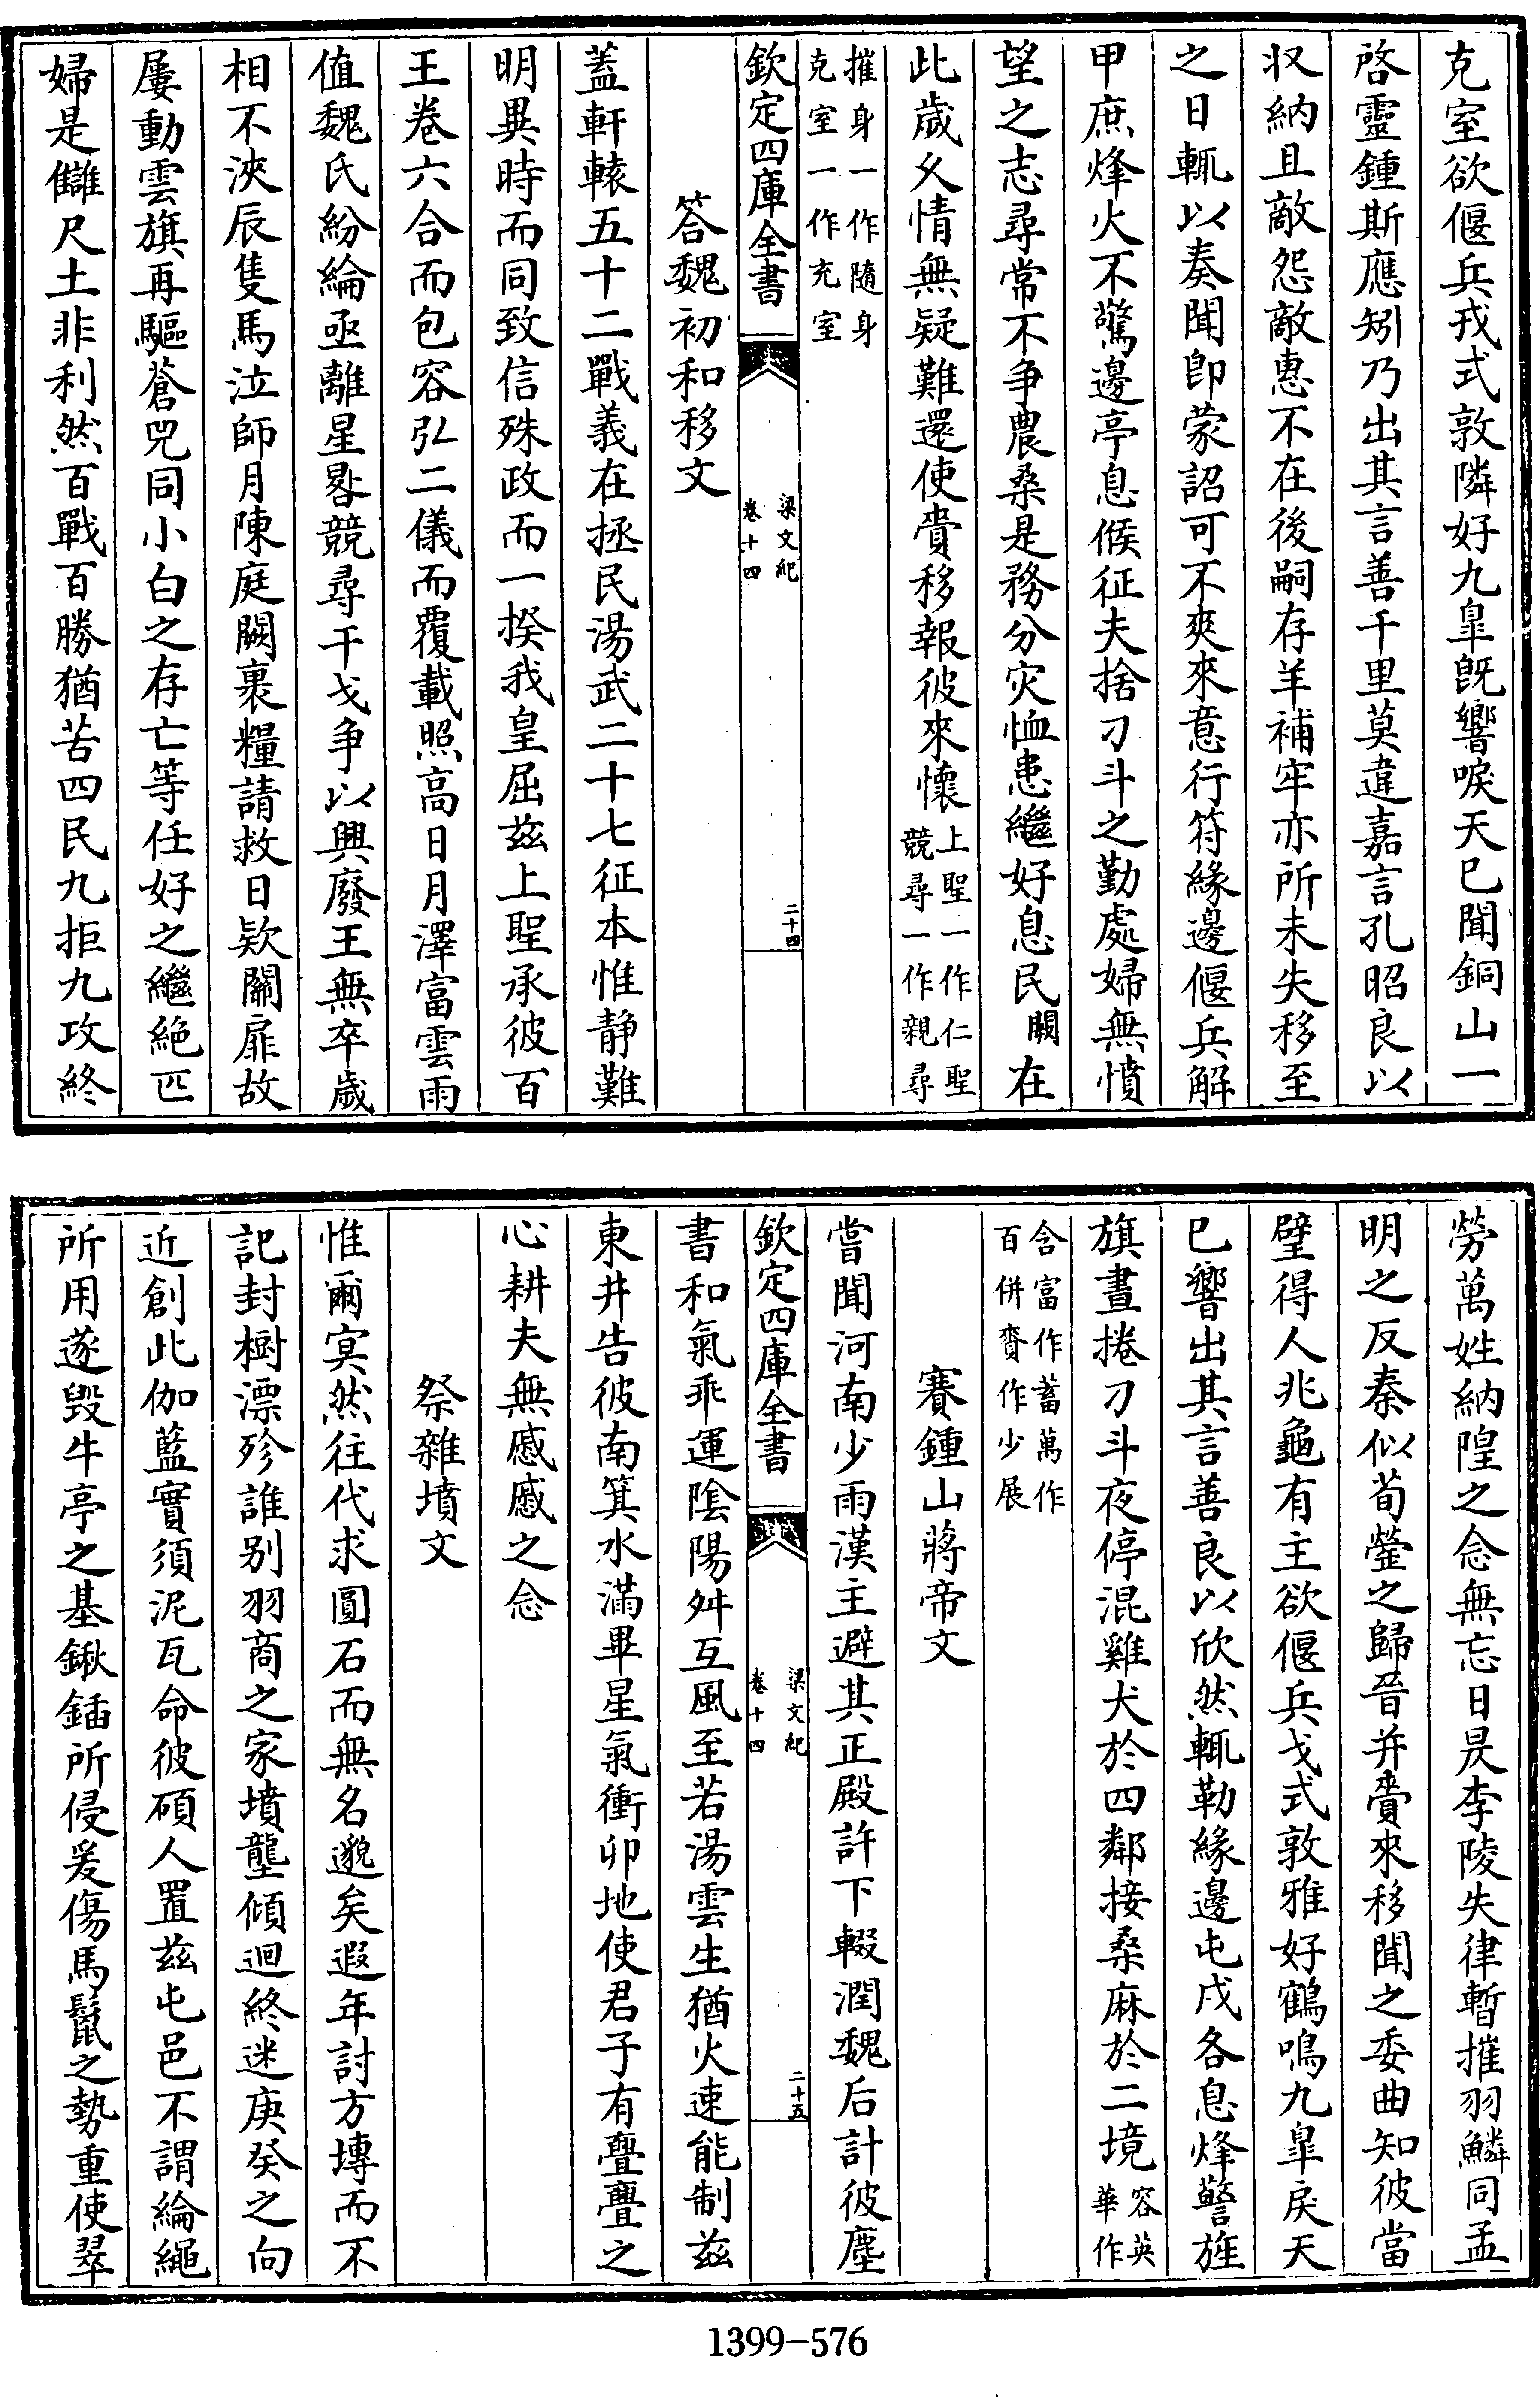 克室欲偃兵戎式敦隣好九臯旣響唳天已聞銅山一
啓靈鍾斯應矧乃出其言善千里莫違嘉言孔昭良以
収納且敵怨敵惠不在後嗣存羊補牢亦所未失移至
之日輒以奏聞卽蒙詔可不爽來意行符緣邊偃兵解
甲庶烽火不驚邊亭息候征夫捨刁斗之勤處婦無憤
望之志尋常不争農桑是務分灾恤患繼好息民闕在
此歲久情無疑難還使賚移報彼來懷上聖一作仁聖
競尋一作親尋
摧身一作隨身
克室一作充室
欽定四庫全書
梁文紀
卷十四
二十四
答魏初和移文
蓋軒轅五十二戰義在拯民湯武二十七征本惟静難
明異時而同致信殊政而一揆我皇屈兹上聖承彼百
王卷六合而包容弘二儀而覆載照高日月澤富雲雨
值魏氏紛綸亟離星晷競尋干戈争以興廢王無卒歲
相不浹辰隻馬泣師月陳庭闕裹糧請救日欵關扉故
屢動雲旗再驅蒼兕同小白之存亡等任好之繼絶匹
婦是讎尺土非利然百戰百勝猶苦四民九拒九攻終
勞萬姓納隍之念無忘日昃李陵失律暫摧羽鱗同孟
明之反秦似荀罃之歸晉并賚來移聞之委曲知彼當
璧得人兆龜有主欲偃兵戈式敦雅好鶴鳴九臯戾天
已響出其言善良以欣然輒勒緣邊屯戍各息烽警旌
旗晝捲刁斗夜停混雞犬於四鄰接桑麻於二境容英
華作
含富作蓄萬作
百併賚作少展
賽鍾山蔣帝文
嘗聞河南少雨漢主避其正殿許下輟潤魏后計彼塵
欽定四庫全書
梁文紀
卷十四
二十五
書和氣乖運陰陽舛互風至若湯雲生猶火速能制兹
東井告彼南箕水滿畢星氣衝卯地使君子有亹亹之
心耕夫無慼慼之念
祭雜墳文
惟爾冥然往代求圓石而無名邈矣遐年討方塼而不
記封樹漂殄誰别羽商之家墳壟傾迴終迷庚癸之向
近創此伽藍實須泥瓦命彼碩人置兹屯邑不謂綸繩
所用遂毁牛亭之基鍬鍤所侵爰傷馬鬛之勢重使翠
1399-576